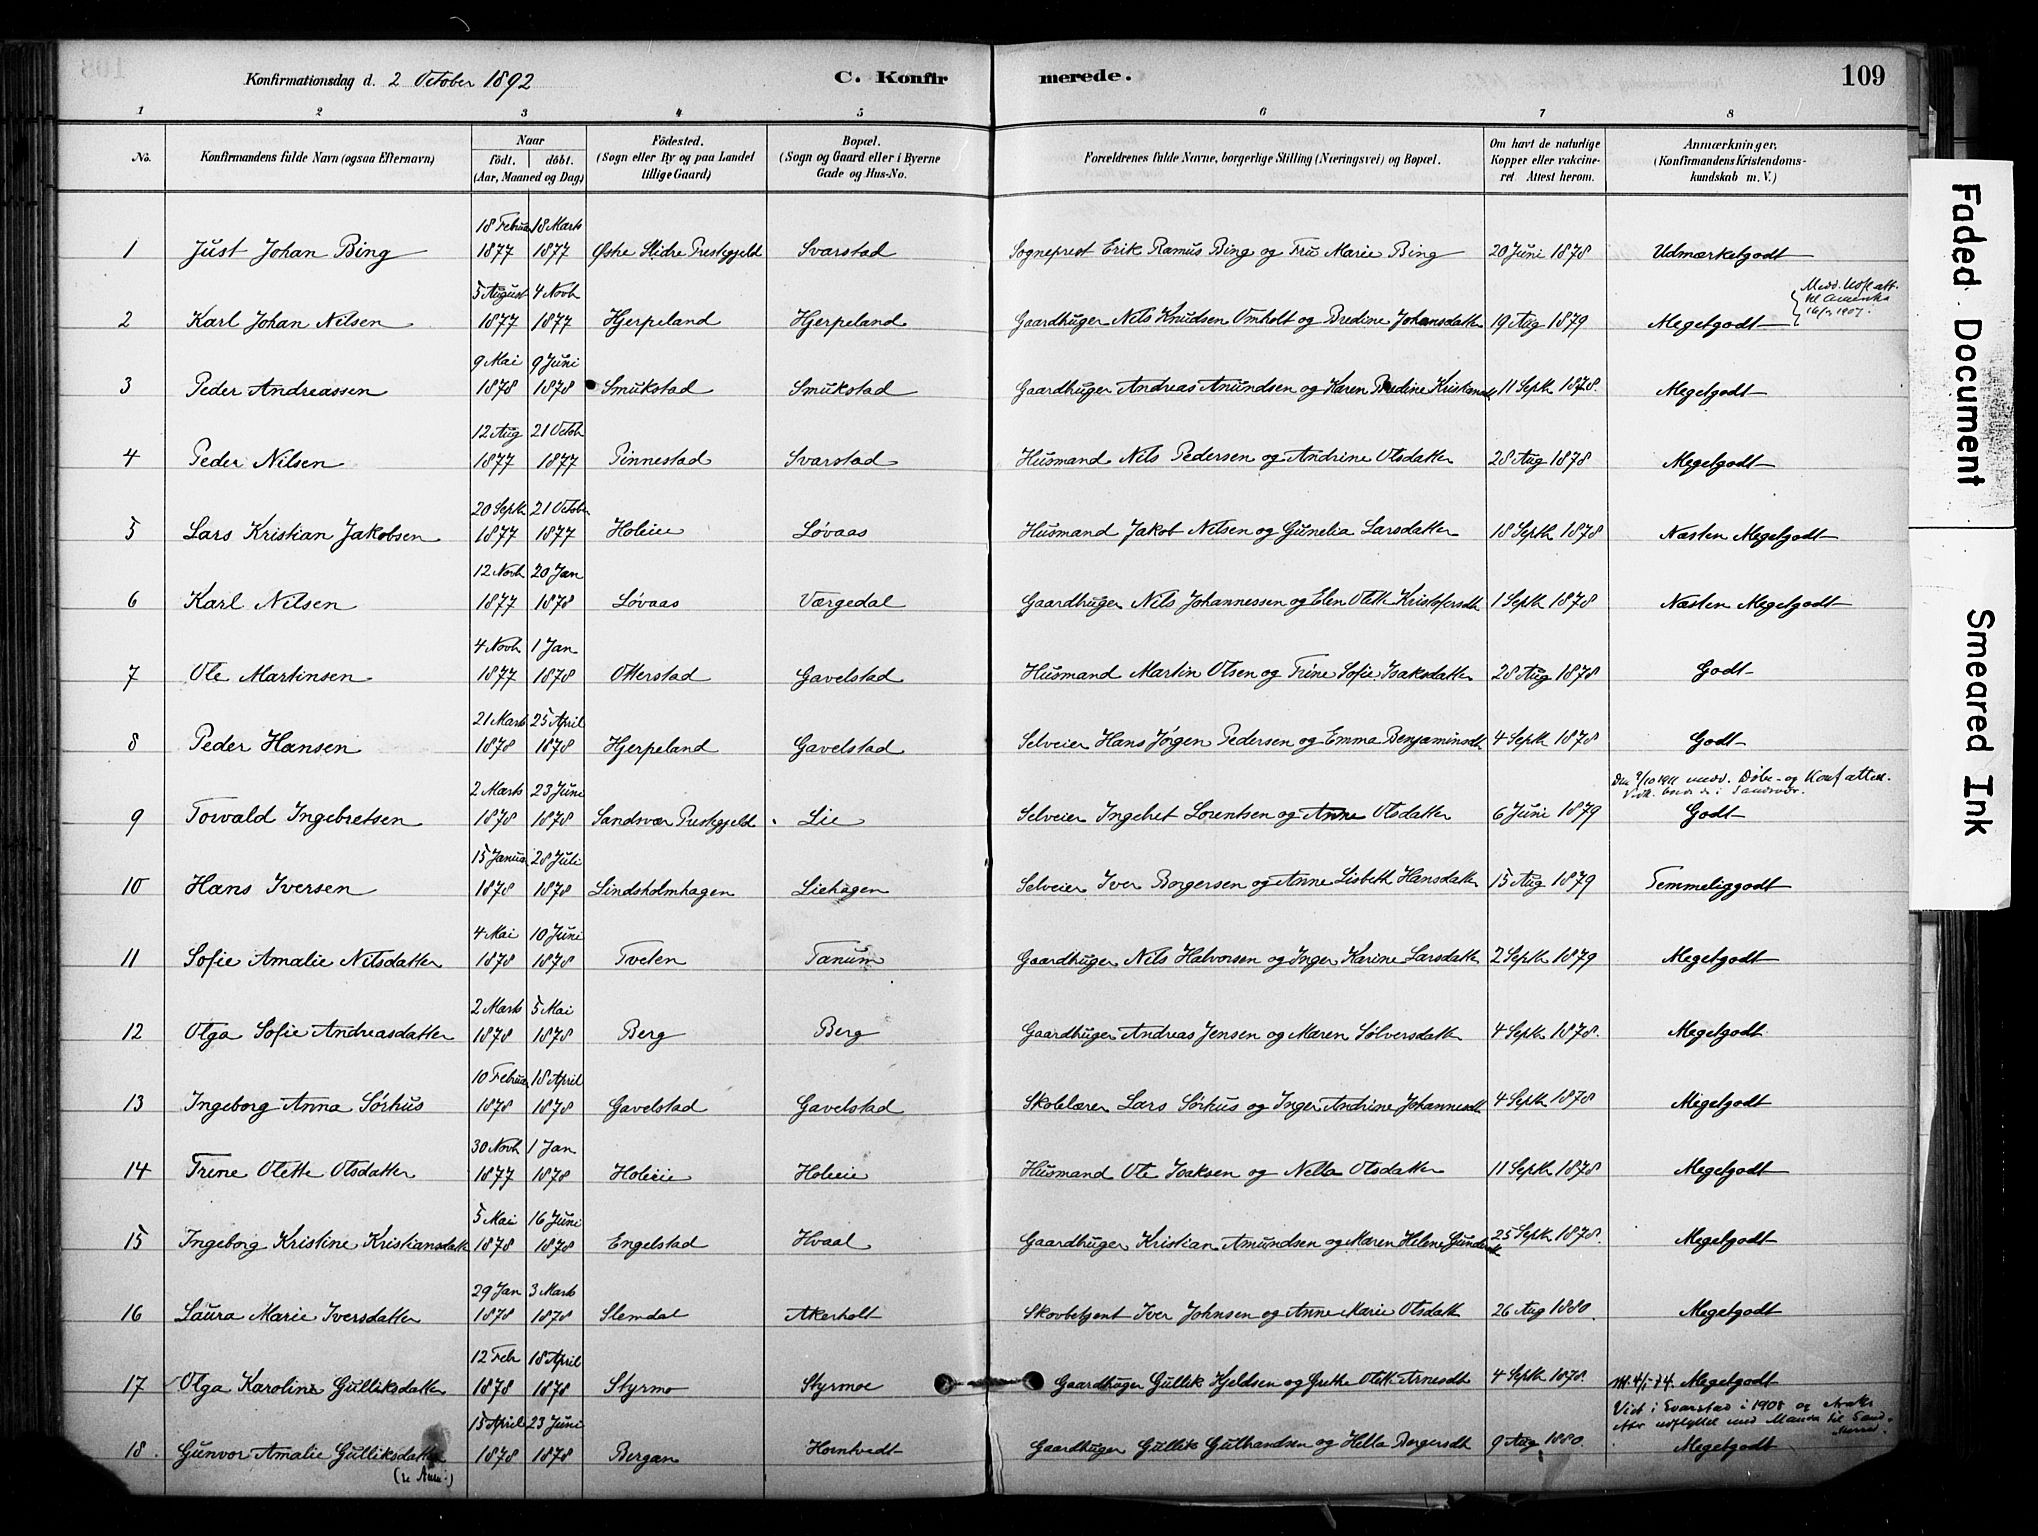 Konfirmationsdag d. 2 October 1892 C. Konfir merede. 109
1 2 3 4 5 6 7 8
No. Konfirmandens fulde Navn (ogsaa Efternavn) Naar Födested. Bopæl. Forældrenes fulde Navne, borgerlige Stilling (Næringsvei) og Bopæl. Om havt de naturlige Anmærkninger.
födt. döbt. (Sogn eller By og paa Landet (Sogn og Gaard eller i Byerne Kopper eller vakcine- (Konfirmandens Kristendoms-
(Aar, Maaned og Dag) tillige Gaard) Gade og Hus-No. ret Attest herom. kundskab m. V.)
18 Februar 18 Marts
1 Just Johan Bing 1877 1877 Østre Slidre Prestegjeld Svarstad Sogneprest Erik Ramus Bing og Fru Marie Bing 20 Juni 1878 Udmærketgodt
5 August 4 Novb Medd. Konf. att.
til Amerika
2 Karl Johan Nilsen 1877 1877 Hjerpeland Hjerpeland Gaardbruger Nils Knudsen Omholt og Bredine Johansdatter 19 Aug 1879 Megetgodt
9 Mai 9 Juni
3 Peder Andreassen 1878 1878 Smukstad Smukstad Gaardbruger Andreas Amundsen og Karen Bredine Kristiansd 11 Septb 1878.. Megetgodt
12 Aug 21 Octob
4 Peder Nilsen 1877 1877 Pinnestad Svarstad Husmand Nils Pedersen og Andrine Olsdatter 28 Aug 1878 Megetgodt
20 Septb 21 Octob
5 Lars Kristian Jakobsen 1877 1877 Holeie Løvaas Husmand Jakob Nilsen og Gunelia Larsdatter 18 Septb 1878 Næsten Megetgodt
12 Novb 20 Jan
6 Karl Nilsen 1877 1878 LøvaasVærgedal Gaardbruger Nils Johannessen og Elen Olette Kristofersdt 1 Septb 1878 Næsten Megetgodt
4 Novb 1 Jan
7 Ole Martinsen 1877 1878 Otterstad Gavelstad Husmand Martin Olsen og Trine Sofie Isaksdatter 28 Aug 1878 Godt
21 Marts 25 April
8 Peder Hansen 1878 1878 Hjerpeland Gavelstad Selveier Hans Jørgen Pedersen og Emma Benjaminsdt 4 Septb 1878 Godt
2 Marts 23 Juni medd. Döbe- og Konf att.
9 Torvald Ingebretsen 1878 1878 Sandsvær Prestegjeld Lie Selveier Ingebret Lorentsen og Anne Olsdatter 6 Juni 1879 Godt
15 Januar 28 Juli
10 Hans Iversen 1878 1878 Lindsholmhagen Liehagen Selveier Iver Borgersen og Anne Lisbeth Hansdatter 15 Aug 1879 Temmeliggodt
4 Mai 10 Juni
11 Sofie Amalie Nilsdatter 1878 1878 Tveten Tanum Gaardbruger Nils Halvorsen og Inger Karine Larsdatter 2 Septb 1879 Megetgodt
2 Marts 5 Mai
12 Olga Sofie Andreasdatter 1878 1878 Berg Berg Gaardbruger Andreas Jensen og Maren Sølversdatter 4 Septb 1878. Megetgodt
10 Februar 18 April
13 Ingeborg Anna Sørhus 1878 1878 Gavelstad Gavelstad Skolelærer Lars Sørhus og Inger Andrine Johannesdt 4 Septb 1878 Megetgodt
30 Novb 1 Jan
14 Trine Olette Olsdatter 1877 1878 Holeie Holeie Husmand Ole Isaksen og Nella Olsdatter 11 Septb 1878 Megetgodt
5 Mai 16 Juni
15 Ingeborg Kristine Kristiansdatter 1878 1878 Engelstad Hvaal Gaardbruger Kristian Amundsen og Maren Helene Gundersdt 25 Septb 1878. Megetgodt
29 Jan 3 Marts
16 Laura Marie Iversdatter 1878 1878 Slemdal Akerholt Skovbetjent Iver Johnsen og Anne Marie Olsdatter 26 Aug 1880. Megetgodt
12 Feb 18 April
17 Olga Karoline Gulliksdatter 1878 1878 Styrmo Styrmoe Gaardbruger Gullik Kjeldsen og Grethe Olette Arnesdt 4 Septb 1878. Megetgodt
15 April 23 Juni Vied i Svarstad i 1908
18. Gunvor Amalie Gulliksdatter 1878 1878 Bergan Horntvedt Gaardbruger Gullik Gulbrandsen og Hella Borgersdt 9 Aug 1880. Megetgodt
Faded Document
Smeared Ink